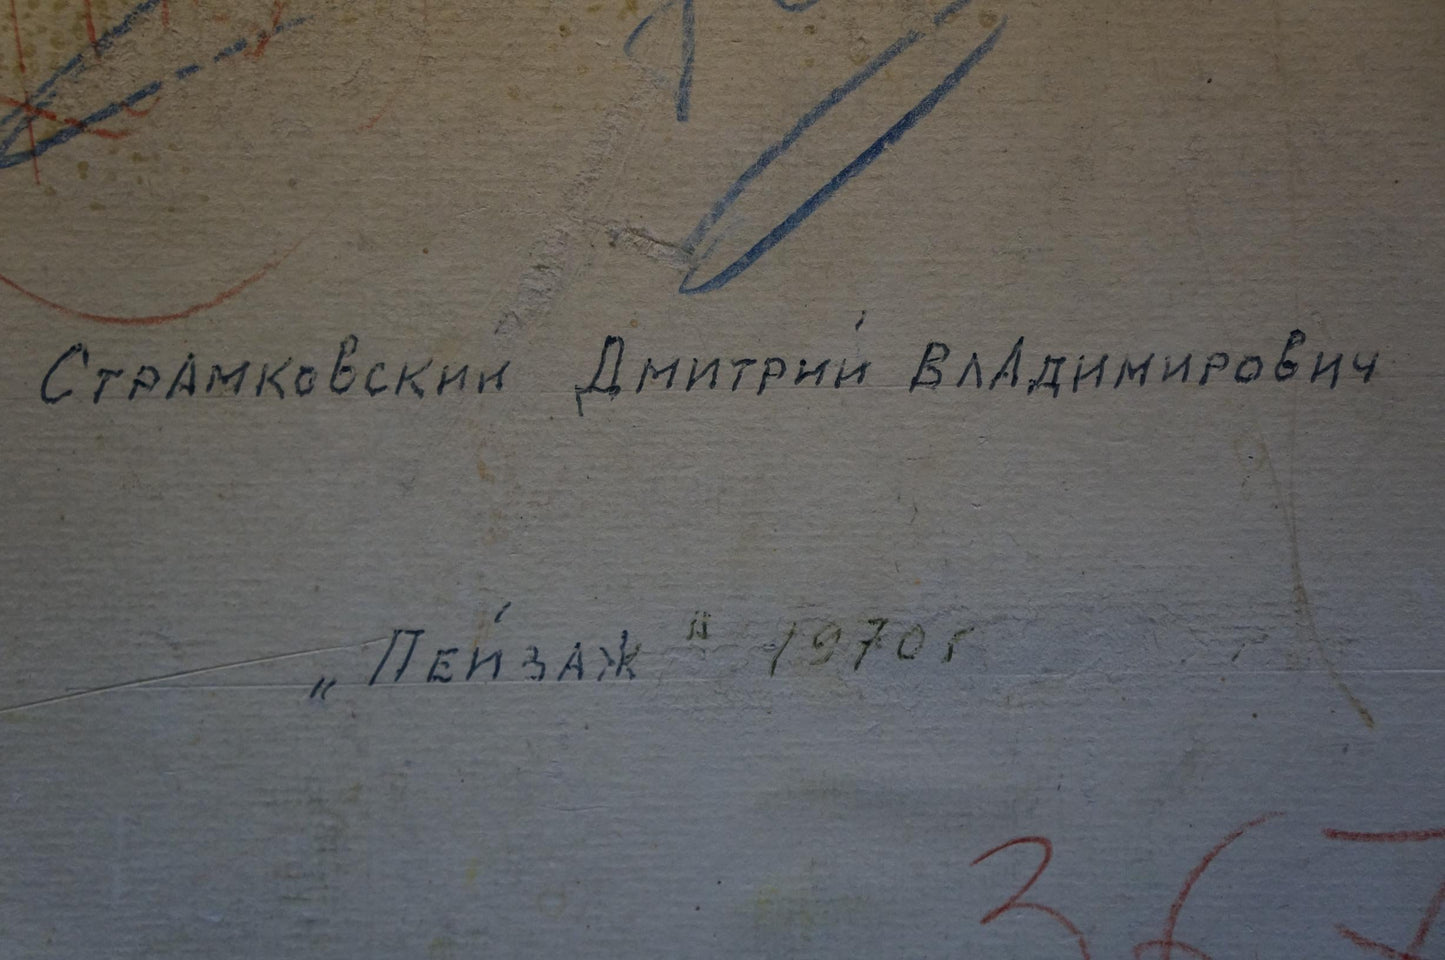 Страмковский Дмитрий Владимирович
„Пейзаж" 1970г
367